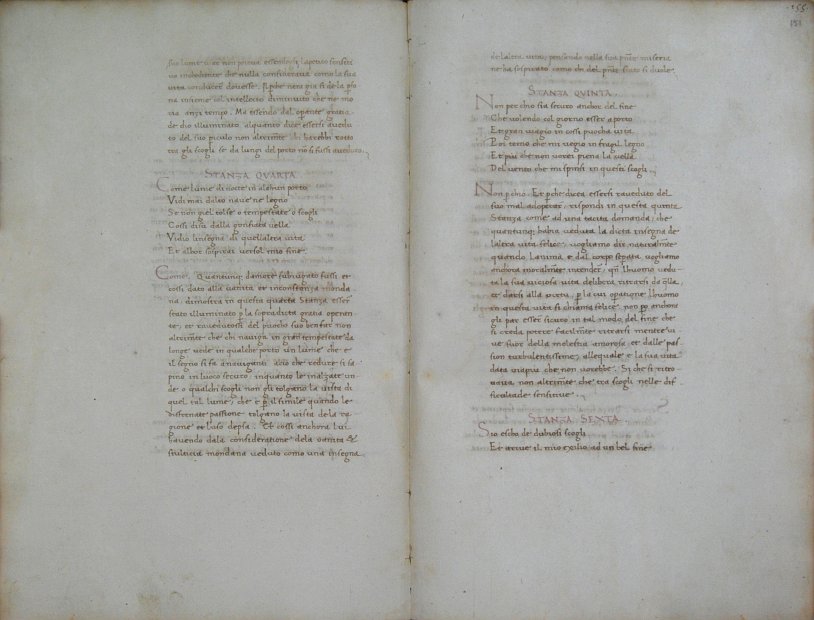 suo lume viver non poteva essendogli lapetito sensiti
vo inobediente che nulla considerava como la sua
vita condurre dovesse. Il pche nera gia si de la pso
na insieme col intellecto diminuito che ne mo
ria anzi tempo. Ma essendo dal opante gratia
de dio illuminato alquanto dice essersi avedu
to del suo piculo non altrimte chi harebbi rotto
tra gli scogli se da lungi del porto nò si fussi aveduto.
STANZA QUARTA
Come lume di nocte in alchun porto
Vidi mai dalto nave ne legno
Se non gliel tolse o tempestate o scogli
Cossi disu dalla gonfiata vella
Vidio linsegna di quellaltra vita
Et alhor sospirai versol mio fine.
Come. Quantunq; damore subiugato fussi et
cossi dato alla vanita et inconstanza monda
na, dimostra in questa quarta Stanza esser
stato illuminato p la sopradicta gratia operan
te, et ravedutosi del puocho suo benfar non
altrimte che chi naviga in gran tempestate da
longe vede in qualche porto un lume che e
il segno si fa anaviganti acio che redure si sa
pino in luoco securo, inquanto le inalzate un
de o qualchi scogli non gli tolgano la vista di
quel tal lume, che e p il simile quando le
disfrenate passione tolgano la vista de la ra
gione et luso depsa. Et cossi anchora lui
havendo dala consideratione dela vanita et
stulticia mondana veduto como una insegna
255.
151
de laltra vita, pensendo nella sua pnte miseria
ne ha sospirato como chi del pnte stato si duole.
STANZA QUINTA.
Non per chio sia securo anchor del fine
Che volendo col giorno esser a porto
Et gran viagio in cossi puocha vita
Et oi temo che mi vegio in fragil legno
Et piu che non vorei piena la vella
Del vento che mi spinsi in questi scogli.
Non p chio. Et pche dicea essersi raveduto del
suo mal adoperar, rispondi in questa quinta
Stanza come ad una tacita domanda, che
quantunq; habia veduta la dicta insegna de
laltra vita felice, vogliamo dir naturalmte
quando lanima e dal corpo segata, vogliamo
anchora moralmte intender, qn lhuomo vedu
ta la sua viciosa vita delibera ritrarsi da qlla,
et darsi alla virtu, p la cui opatione lhuomo
in questa vita si chiama felice non po anchora
gli par esser sicuro in tal modo, del fine che
si creda potere facilmte ritrarsi mentre vi
ve fuor della molestia amorosa et dalle pas
sion turbulentissime, allequale e la sua vita
data viapiu che non vorebbe. Si che si ritro
vava non altrimte che tra scogli nelle dif
ficultade sensitive.
STANZA SEXTA.
Sio escho de dubiosi scogli
Et arive il mio exilio ad un bel fine